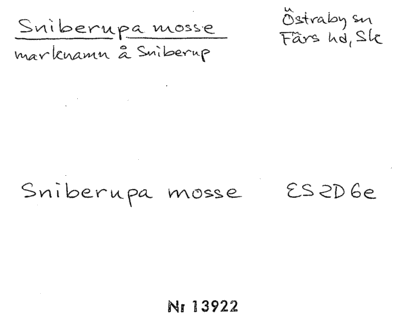 Sniberupa mosse
marknamn å Sniberup
Östraby sn
Färs hd, Sk
Sniberupa mosse ES2D6e
Nr 13922